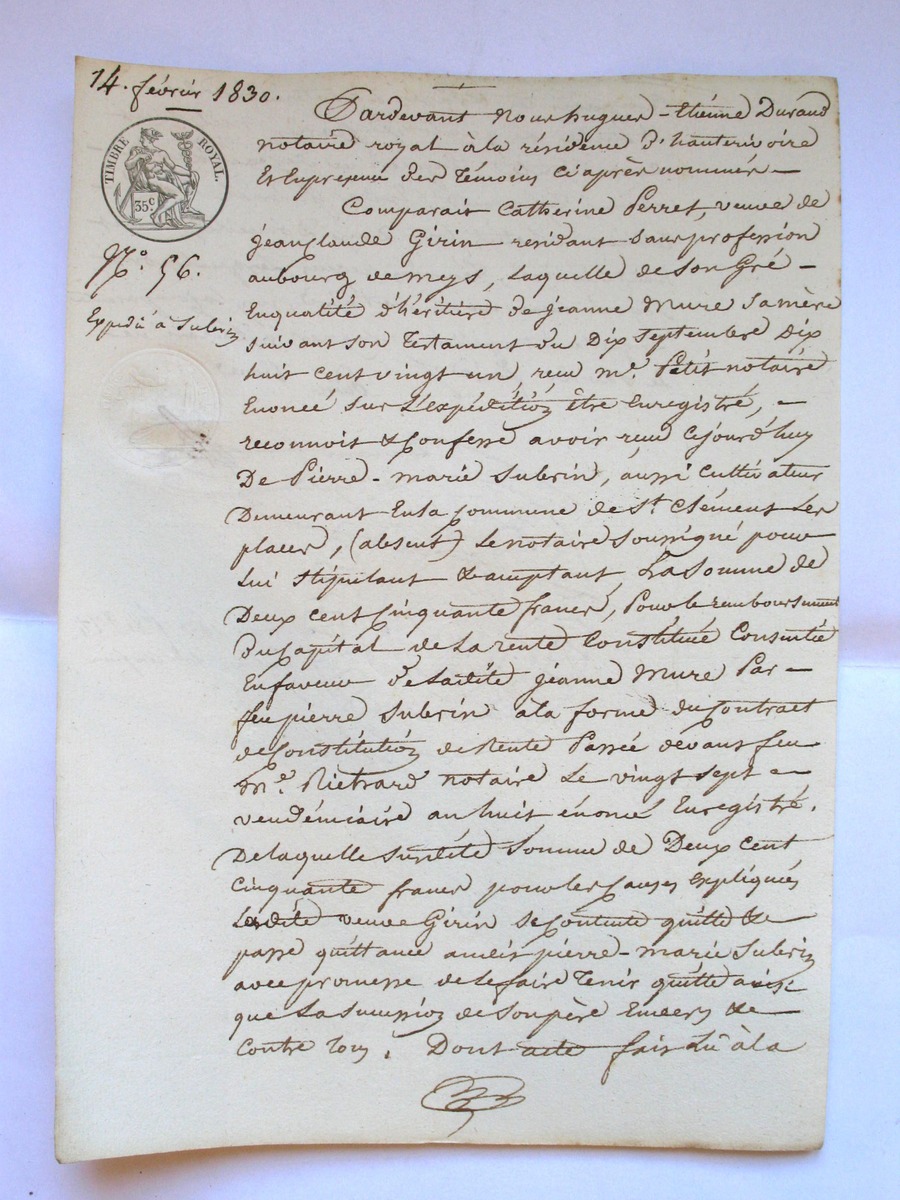 14. février 1830.
TIMBRE ROYAL.
35 c
N.° 56.
Expédié à Subrin
Pardevant Nous hugues-Etiénne Durand
notaire royal à la résidence d'hauterivoire
Et Enpresence des Témoins ci après nommés —
Comparait Catherine Perret, veuve de
jean Claude Girin residant sans profession
aubourg de meys, Laquelle de son Gré —
En qualité d'héritière de jeanne Mure sa mère
suivant son Testament du Dix septembre Dix
huit cent vingt un reçu m.e Petit notaire
Enoncé sur L'expédition être Enregistré, —
reconnoit & Confesse avoir reçu cejourd'huy
De Pierre-marie Subrin, aussi Cultivateur
Demeurant En la Commune de St. Clément Les
places, (absent) Le notaire soussigné pour
Lui stipulant & acceptant, La Somme de
Deux cent Cinquante francs, Pour le remboursement
Du Capital de La rente Constituée Consentie
En faveur de Ladite jeanne Mure Par —
feu pierre Subrin à la forme du Contract
de Constitution de Rente Passée devant feu
M.e notaire Le vingt sept —
vendémiaire an huit énoncé Enregistré.
De laquelle susdite Somme de Deux Cent
Cinquante francs pour les Causes Expliquées
Ladite veuve Girin se Contente quitte &
passe quittance audit pierre-marie Subrin
avec promesse de le faire Tenir quitte ainsi
que La Succession de Son père Envers &
Contre Tous. Dont acte fait Lu à la